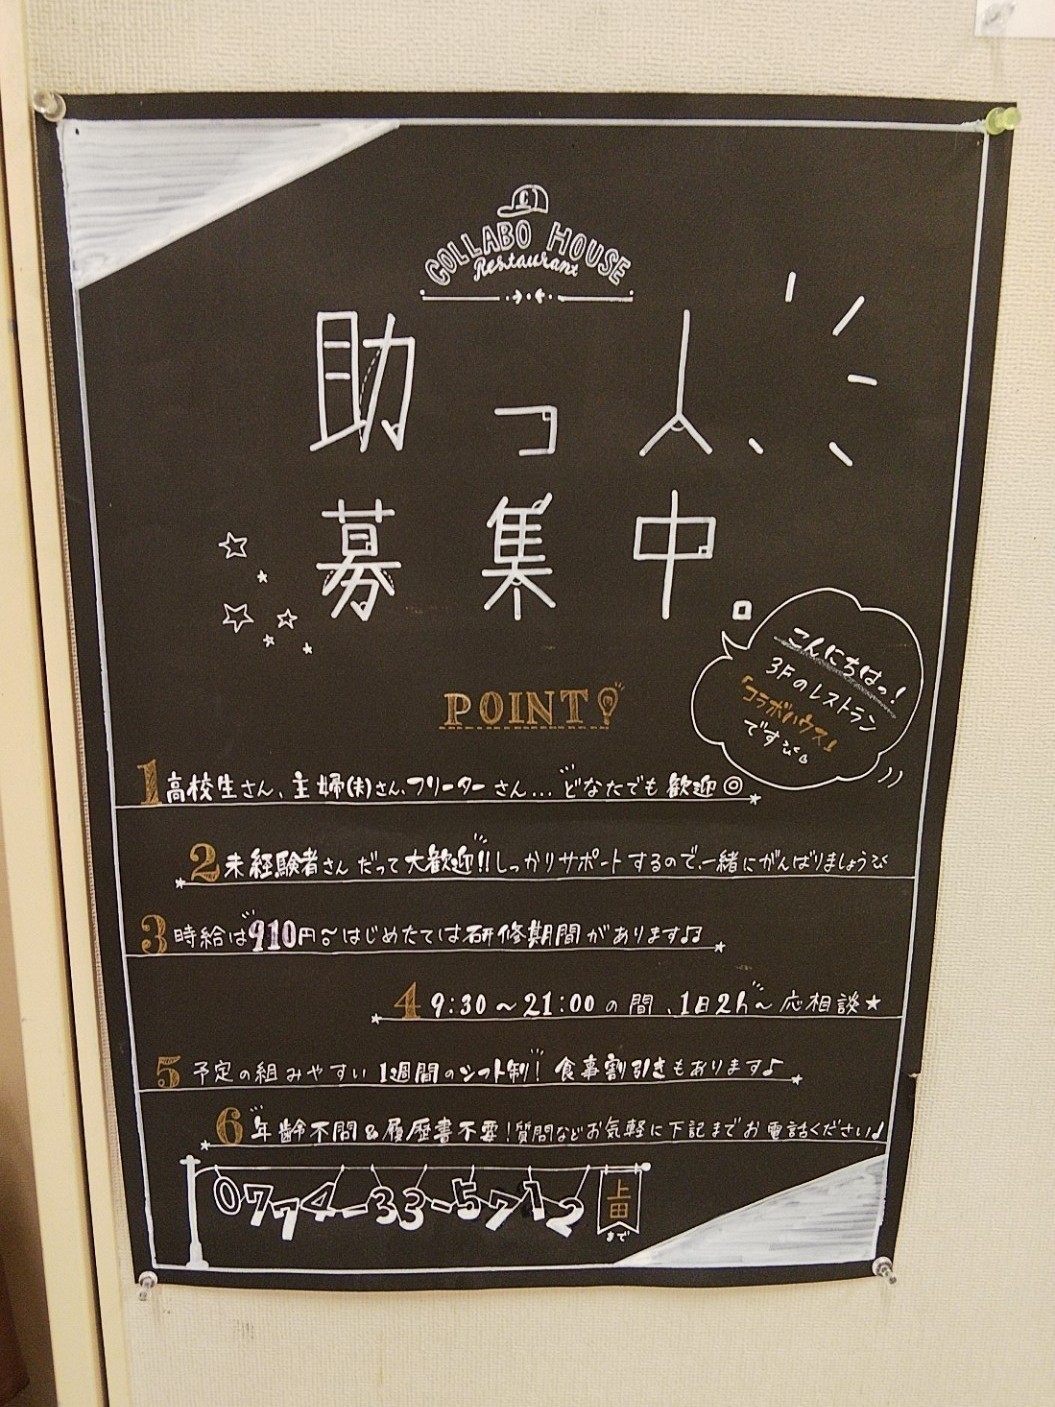 C
COLLABO HOUSE
Restaurant
助っ人、
募集中。
こんにちはっ!
3Fのレストラン
「コラボハウス」
ですぴ。
POINT
1 高校生さん、主婦(夫)さん、フリーターさん... どなたでも歓迎◎
2 未経験者さんだって大歓迎!!しっかりサポートするので、一緒にがんばりましょうぴ
3 時給は910円~はじめたては研修期間があります♫
4 9:30~21:00の間、1日2h~応相談★
5 予定の組みやすい1週間のシフト制! 食事割引きもあります♪
6 年齢不問&履歴書不要!質問などお気軽に下記までお電話ください♩
0774-33-5712 上田
まで